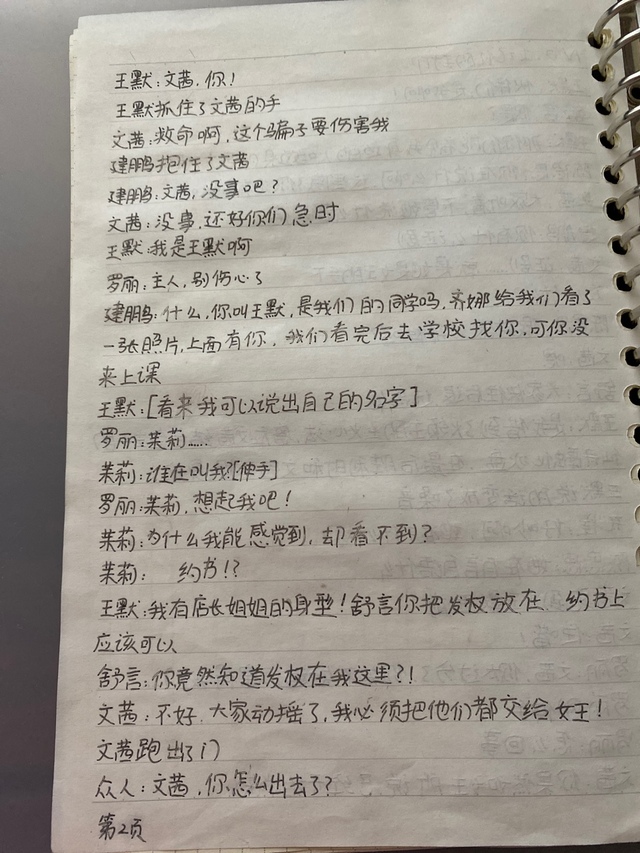 王默:文茜,你!
王默抓住了文茜的手
文茜:救命啊,这个骗子要伤害我
建鹏抱住了文茜
建鹏:文茜,没事吧?
文茜:没事,还好你们急时
王默:我是王默啊
罗丽:主人,别伤心了
建鹏:什么,你叫王默,是我们的同学吗,齐娜给我们看了
一张照片,上面有你,我们看完后去学校找你,可你没
来上课
王默:[看来我可以说出自己的名字]
罗丽:茉莉……
茉莉:谁在叫我?[伸手]
罗丽:茉莉,想起我吧!
茉莉:为什么我能感觉到,却看不到?
茉莉: 约书!?
王默:我有店长姐姐的身型!舒言你把发杈放在 约书上
应该可以
舒言:你竟然知道发杈在我这里?!
文茜:不好,大家动摇了,我必须把他们都交给女王!
文茜跑出了门
众人:文茜,你怎么出去了?
第2页